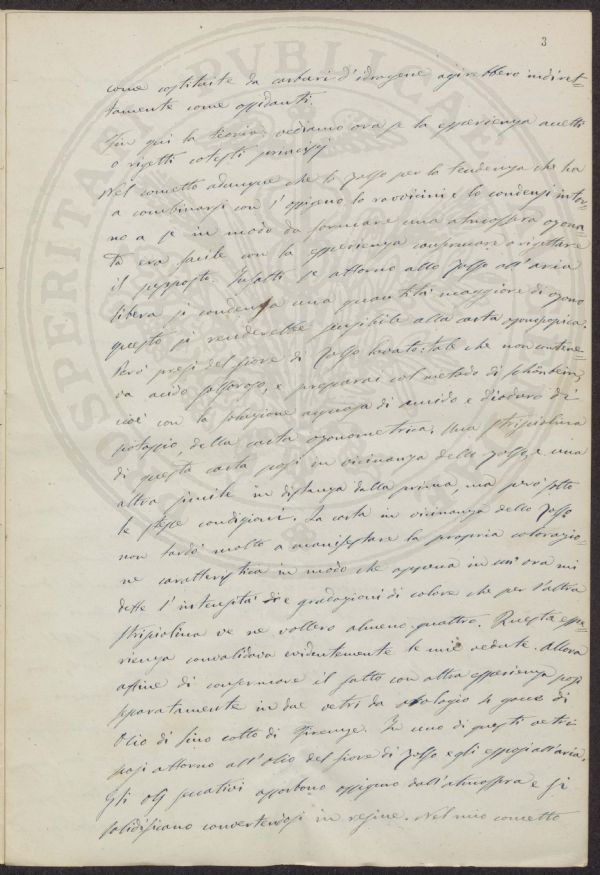 3
come costituite da carburi d'idrogene agirebbero indiret-
tamente come ossidanti.
Fin qui la teoria; vediamo ora se la esperienza accetti
o rigetti cotesti principj
Nel concetto adunque che lo zolfo per la tendenza che ha
a combinarsi con l'ossigeno lo ravvicini e lo condensi intor-
no a se in modo da formare una atmosfera ozona-
ta era facile con la esperienza confermare o rigettare
il supposto. Infatti se attorno allo zolfo all'aria
libera si condensa una quantità maggiore di ozono
questo si renderebbe sensibile alla carta ozonoscopica.
Però presi del fiore di zolfo lavato: tale che non contene-
va acido solforoso, e preparai col metodo di Schönbein,
cioè con la soluzione acquosa di amido e di ioduro di
potassio, della carta ozonometrica. Una strisciolina
di questa carta posi in vicinanza dello zolfo, e una
altra simile in distanza dalla prima, ma però sotto
le stesse condizioni. La carta in vicinanza dello zolfo
non tardò molto a manifestare la propria colorazio-
ne caratteristica in modo che appena in un'ora mi
dette l'intensità di e gradazioni di colore che per l'altra
strisciolina ve ne vollero almeno quattro. Questa espe-
rienza convalidava evidentemente le mie vedute. Allora
affine di confermare il fatto con altra esperienza posi
separatamente in due vetri da orologio gocce di
Olio di Lino cotto di Firenze. In uno di questi vetri
posi attorno all'olio del fiore di zolfo e gli esposi all'aria.
Gli olj seccativi assorbono ossigeno dall'atmosfera e si
solidificano convertendosi in resine. Nel mio concetto